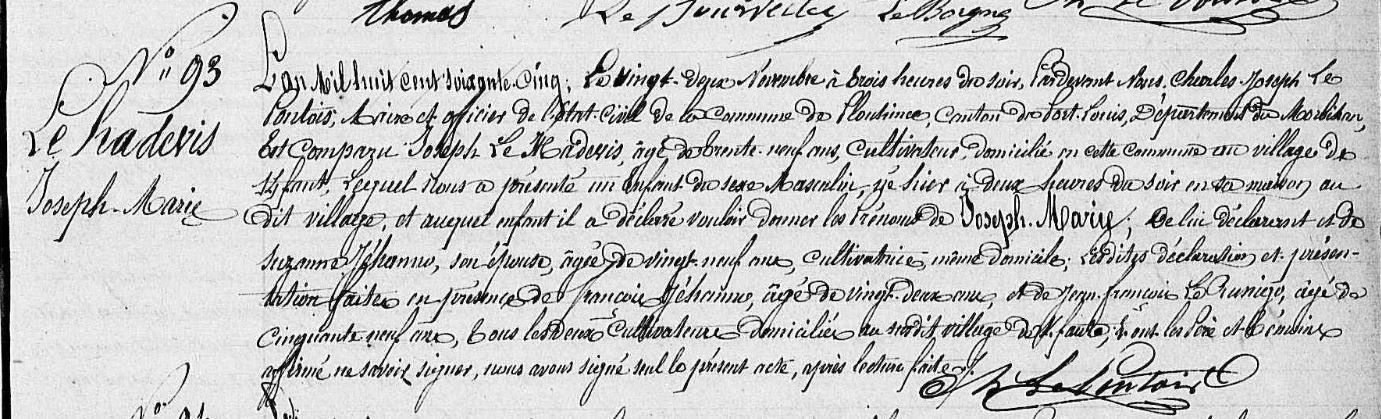 Thomas Le Bourvellec Le Borgne
N° 93
Le Hadevis
Joseph-Marie
L'an Mil huit cent soixante-cinq, Le vingt-deux Novembre à trois heures du soir, Pardevant Nous, Charles Joseph Le
Pontois, Maire et officier de l'état-civil de la Commune de Plouhinec, Canton de Port-Louis, Département du Morbihan,
Est Comparu Joseph Le Hadevis, âgé de trente-neuf ans, Cultivateur, domicilié en cette commune au village de
Lequel Nous a présenté un Enfant du sexe Masculin, né hier à deux heures du soir en sa maison au
dit village, et auquel enfant il a déclaré vouloir donner les Prénoms de Joseph-Marie; De lui déclarant et de
Suzanne Jéhanno, son épouse, âgée de vingt-neuf ans, Cultivatrice, même domicile; Lesdites déclaration et présen-
tation faites en présence de françois Jéhanno, âgé de vingt-deux ans, et de Jean-françois Le âgé de
Cinquante neuf ans, tous les deux Cultivateurs domiciliés au susdit village de et ont les Père et témoins
affirmé ne savoir signer, nous avons signé seul le présent acte, après lecture faite.
Ch Le Pontois